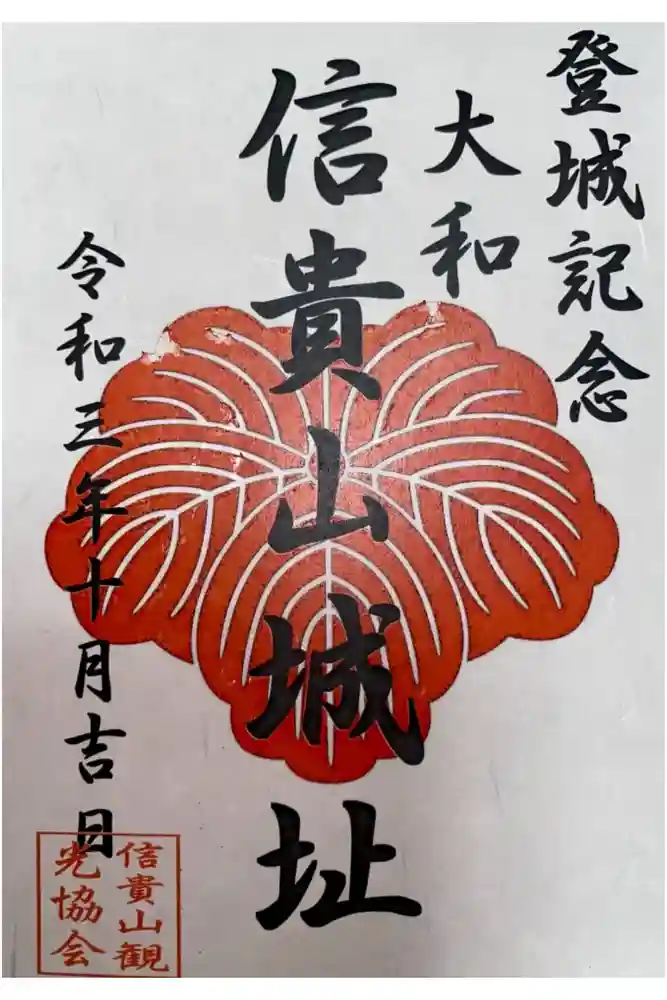 登城記念
大和
信貴山城址
令和三年十月吉日
信貴山観
光協会